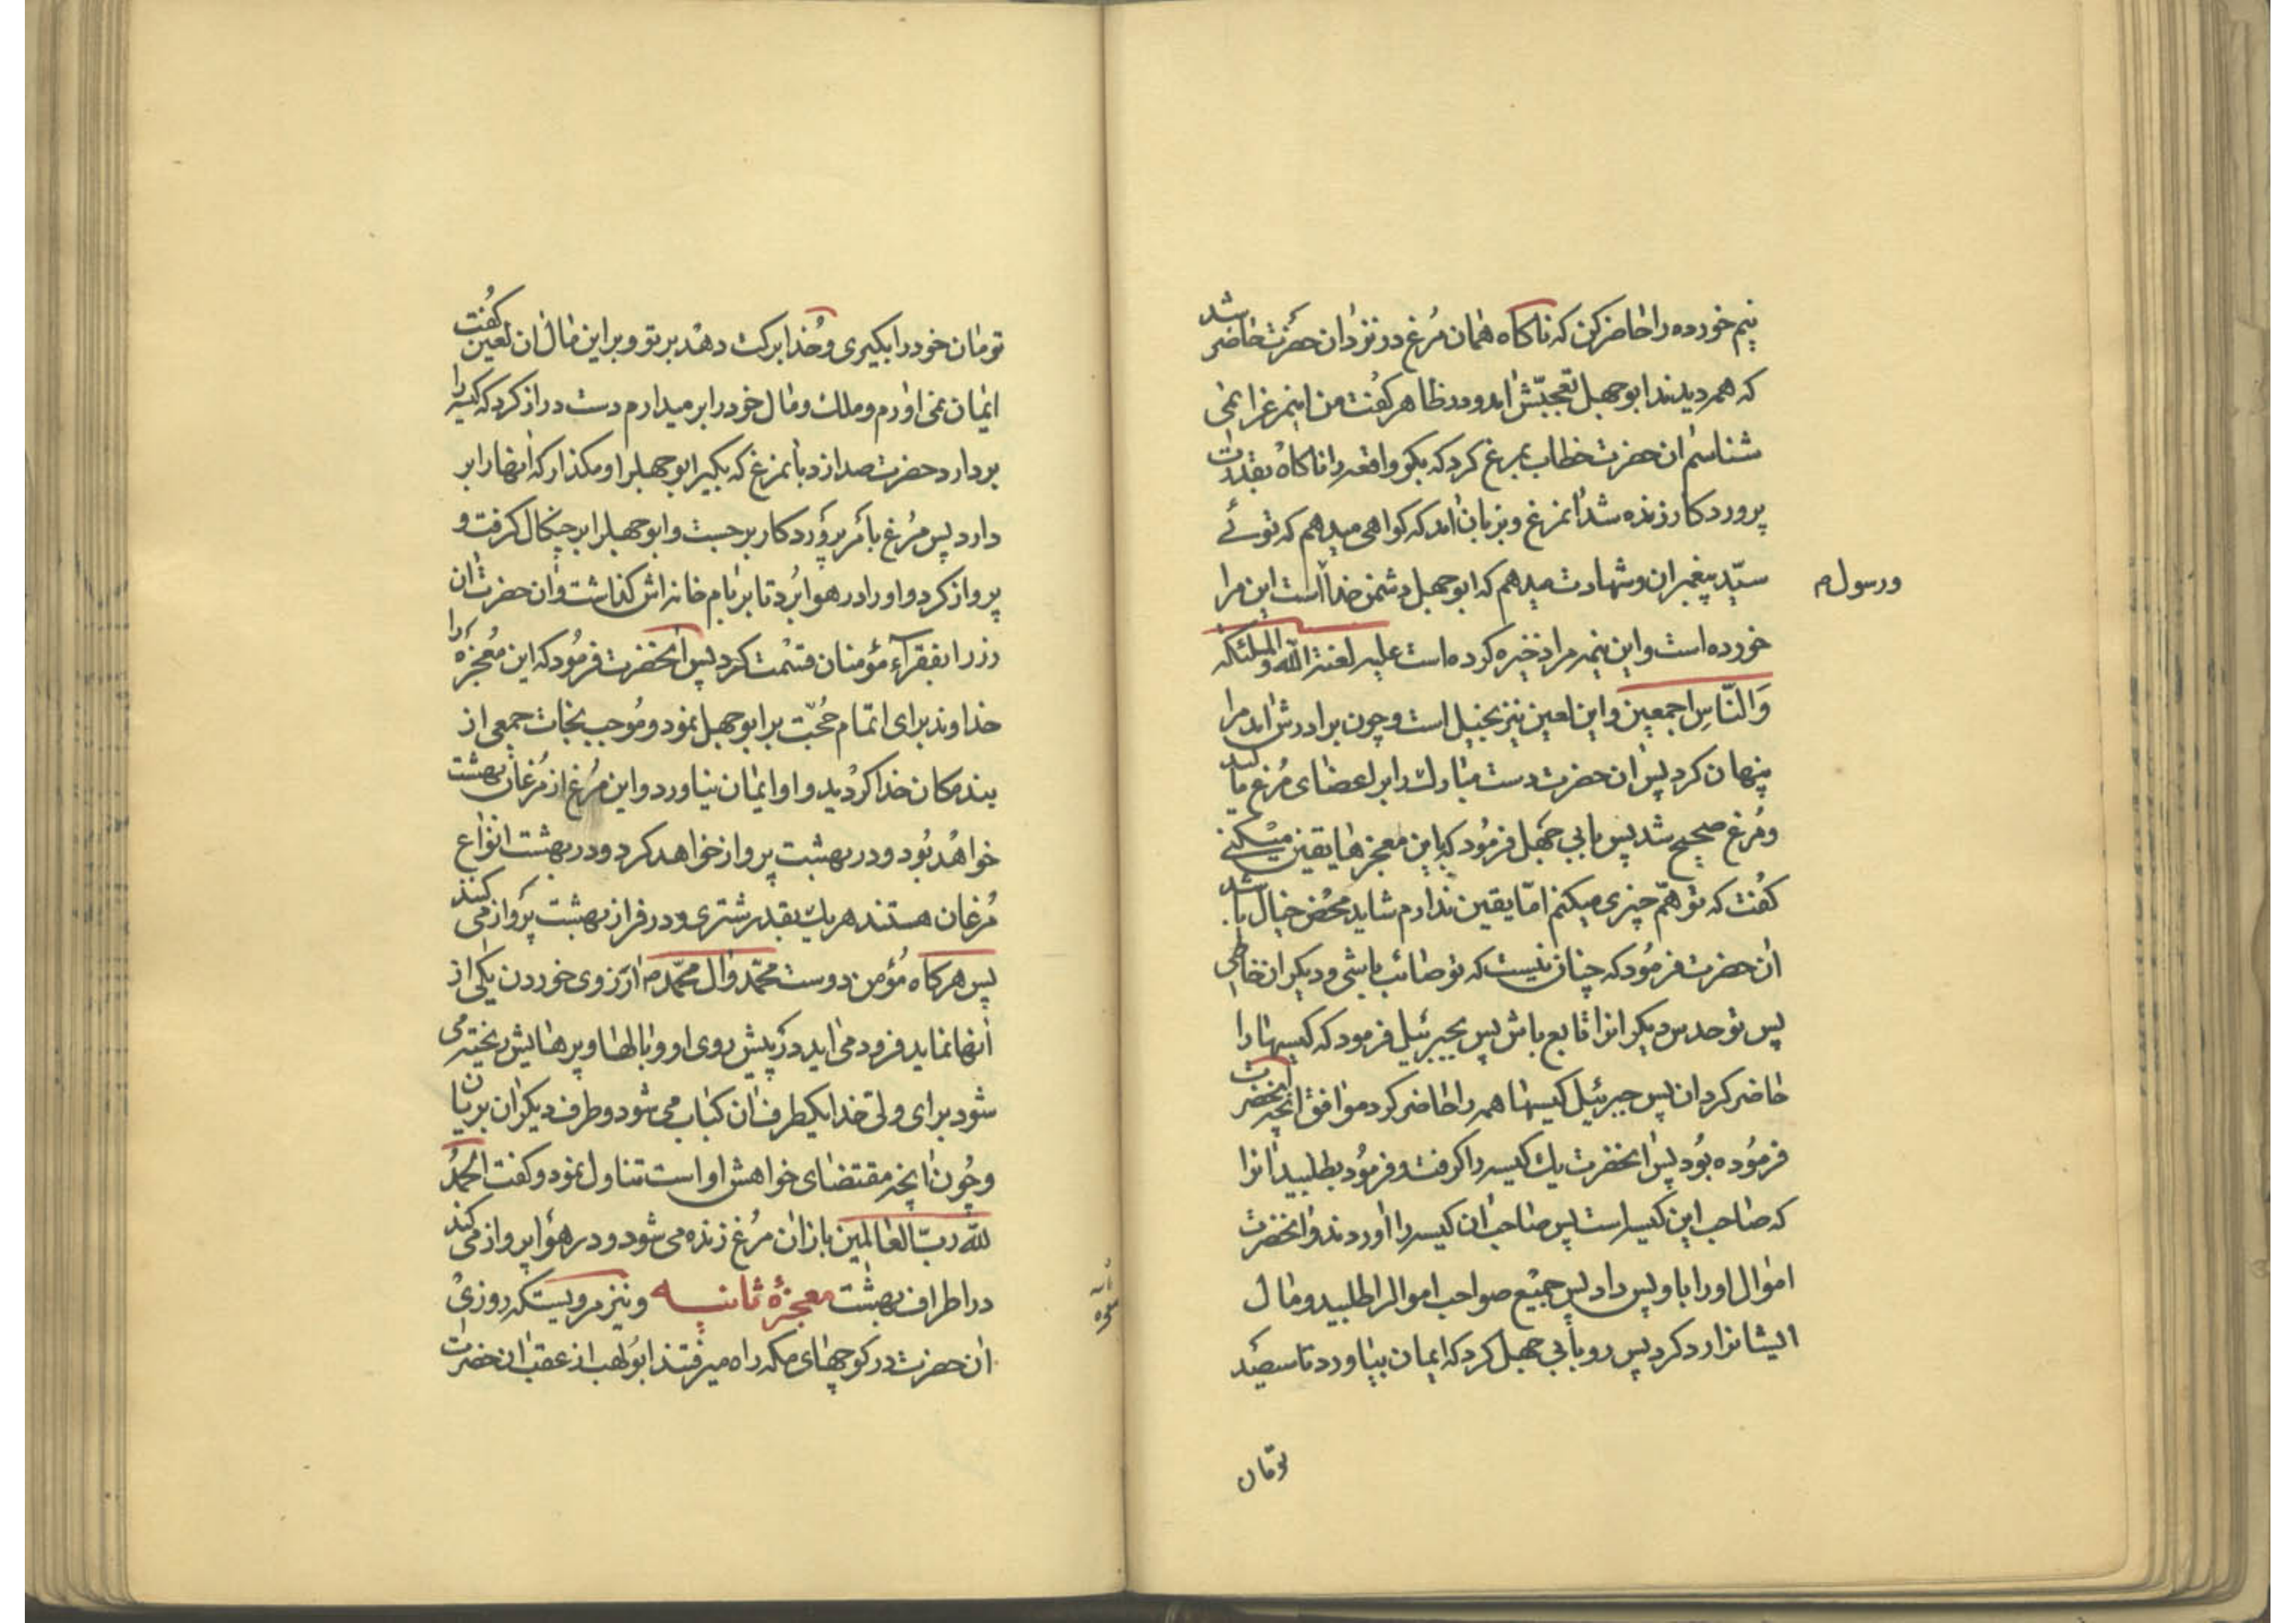 نیم خورده را حاضر کن که ناکاه همان مرغ در نزد ان حضرت حاضر شد
که همه دیدند ابوجهل تعجبش امد و در ظاهر کفت من اینمرغ را نمی
شناسم ان حضرت خطاب بمرغ کرد که بکو واقعه را ناکاه بقدرت
پروردکار زنده شد انمرغ و بزبان امد که کواهی میدهم که توئے
سیّد پیغمبران و شهادت میدهم که ابوجهل دشمن خدا است این مرا
و رسول
خورده است و این نیمه مرا ذخیره کرده است علیه لعنة الله والملئکه
وَالنّاسِ اجمعین و این لعین نیز بخیل است و چون برادرش امد مرا
پنهان کرد پس ان حضرت دست مبارک را بر اعضای مُرغ مالید
و مُرغ صحیح شد پس بابی جهل فرمُود که باین معجزها یقین میکنے
کفُت که توهّم چیزی میکنم امّا یقین ندارم شاید محض خیال باشد
ان حضرت فرمُود که چنان نیست که تو صائب باشی و دیکران خاطی
پس تو حدس دیکرانرا تابع باش پس بجبرئیل فرمود که کیسها را
حاضر کردان پس جبرئیل کیسها همه را حاضر کرد موافق انچه انحضرت
فرمُوده بُود پس انحضرت یک کیسه را کرفت و فرمُود بطلبید انرا
که صاحب این کیسه است پس صاحب ان کیسه را اوردند و انحضرت
اموال او را باو پس داد پس جمیع صواحب اموال را طلبید و مال
ایشانرا رد کرد پس رو بابی جهل کرد که ایمان بیاور تا سیصد
تومان
تومان خود را بکیری و خُدا برکت دهد بر تو و بر این مال ان لعین کفُت
ایمان نمی اورم و ملک و مال خود را بر میدارم دست دراز کرد که کیسه را
بردارد حضرت صدا زد بانمرغ که بکیر ابوجهل را و مکذار که انها را بر
دارد پس مُرغ بامر پروردکار برجست و ابوجهل را بر چنکال کرفت و
پرواز کرد و او را در هوا بُرد تا بر بام خانه اش کذاشت و ان حضرت ان
زر را بفقرآء مؤمنان قسمت کرد پس انحضرت فرمُود که این مُعجزه را
خداوند برای اتمام حُجّت بر ابوجهل نمود و مُوجب نجات جمعی از
بندکان خدا کردید و او ایمان نیاورد و این مُرغ از مُرغان بهشت
خواهُد بُود و در بهشت پرواز خواهد کرد و در بهشت انواع
مُرغان هستند هر یک بقدر شتری و در فراز بهشت پرواز می کنند
پس هرکاه مُؤمن دوست محمّد و ال محمّد ارزوی خوردن یکی از
انها نماید فرود می اید در پیش روی او و بالها و پرهایش ریخته می
شود برای ولی خدا یکطرف ان کباب می شود و طرف دیکر ان بریان
و چُون انچه مقتضای خواهش او است تناول نمود و کفت الحَمدُ
لِلّه ربّ العالمین باز ان مُرغ زنده می شود و در هوا پرواز می کند
در اطراف بهشت معجزهٔ ثانیه و نیز مرویست که روزی
ان حضرت در کوچهای مکه راه میرفتند ابولهب از عقب ان حضرت